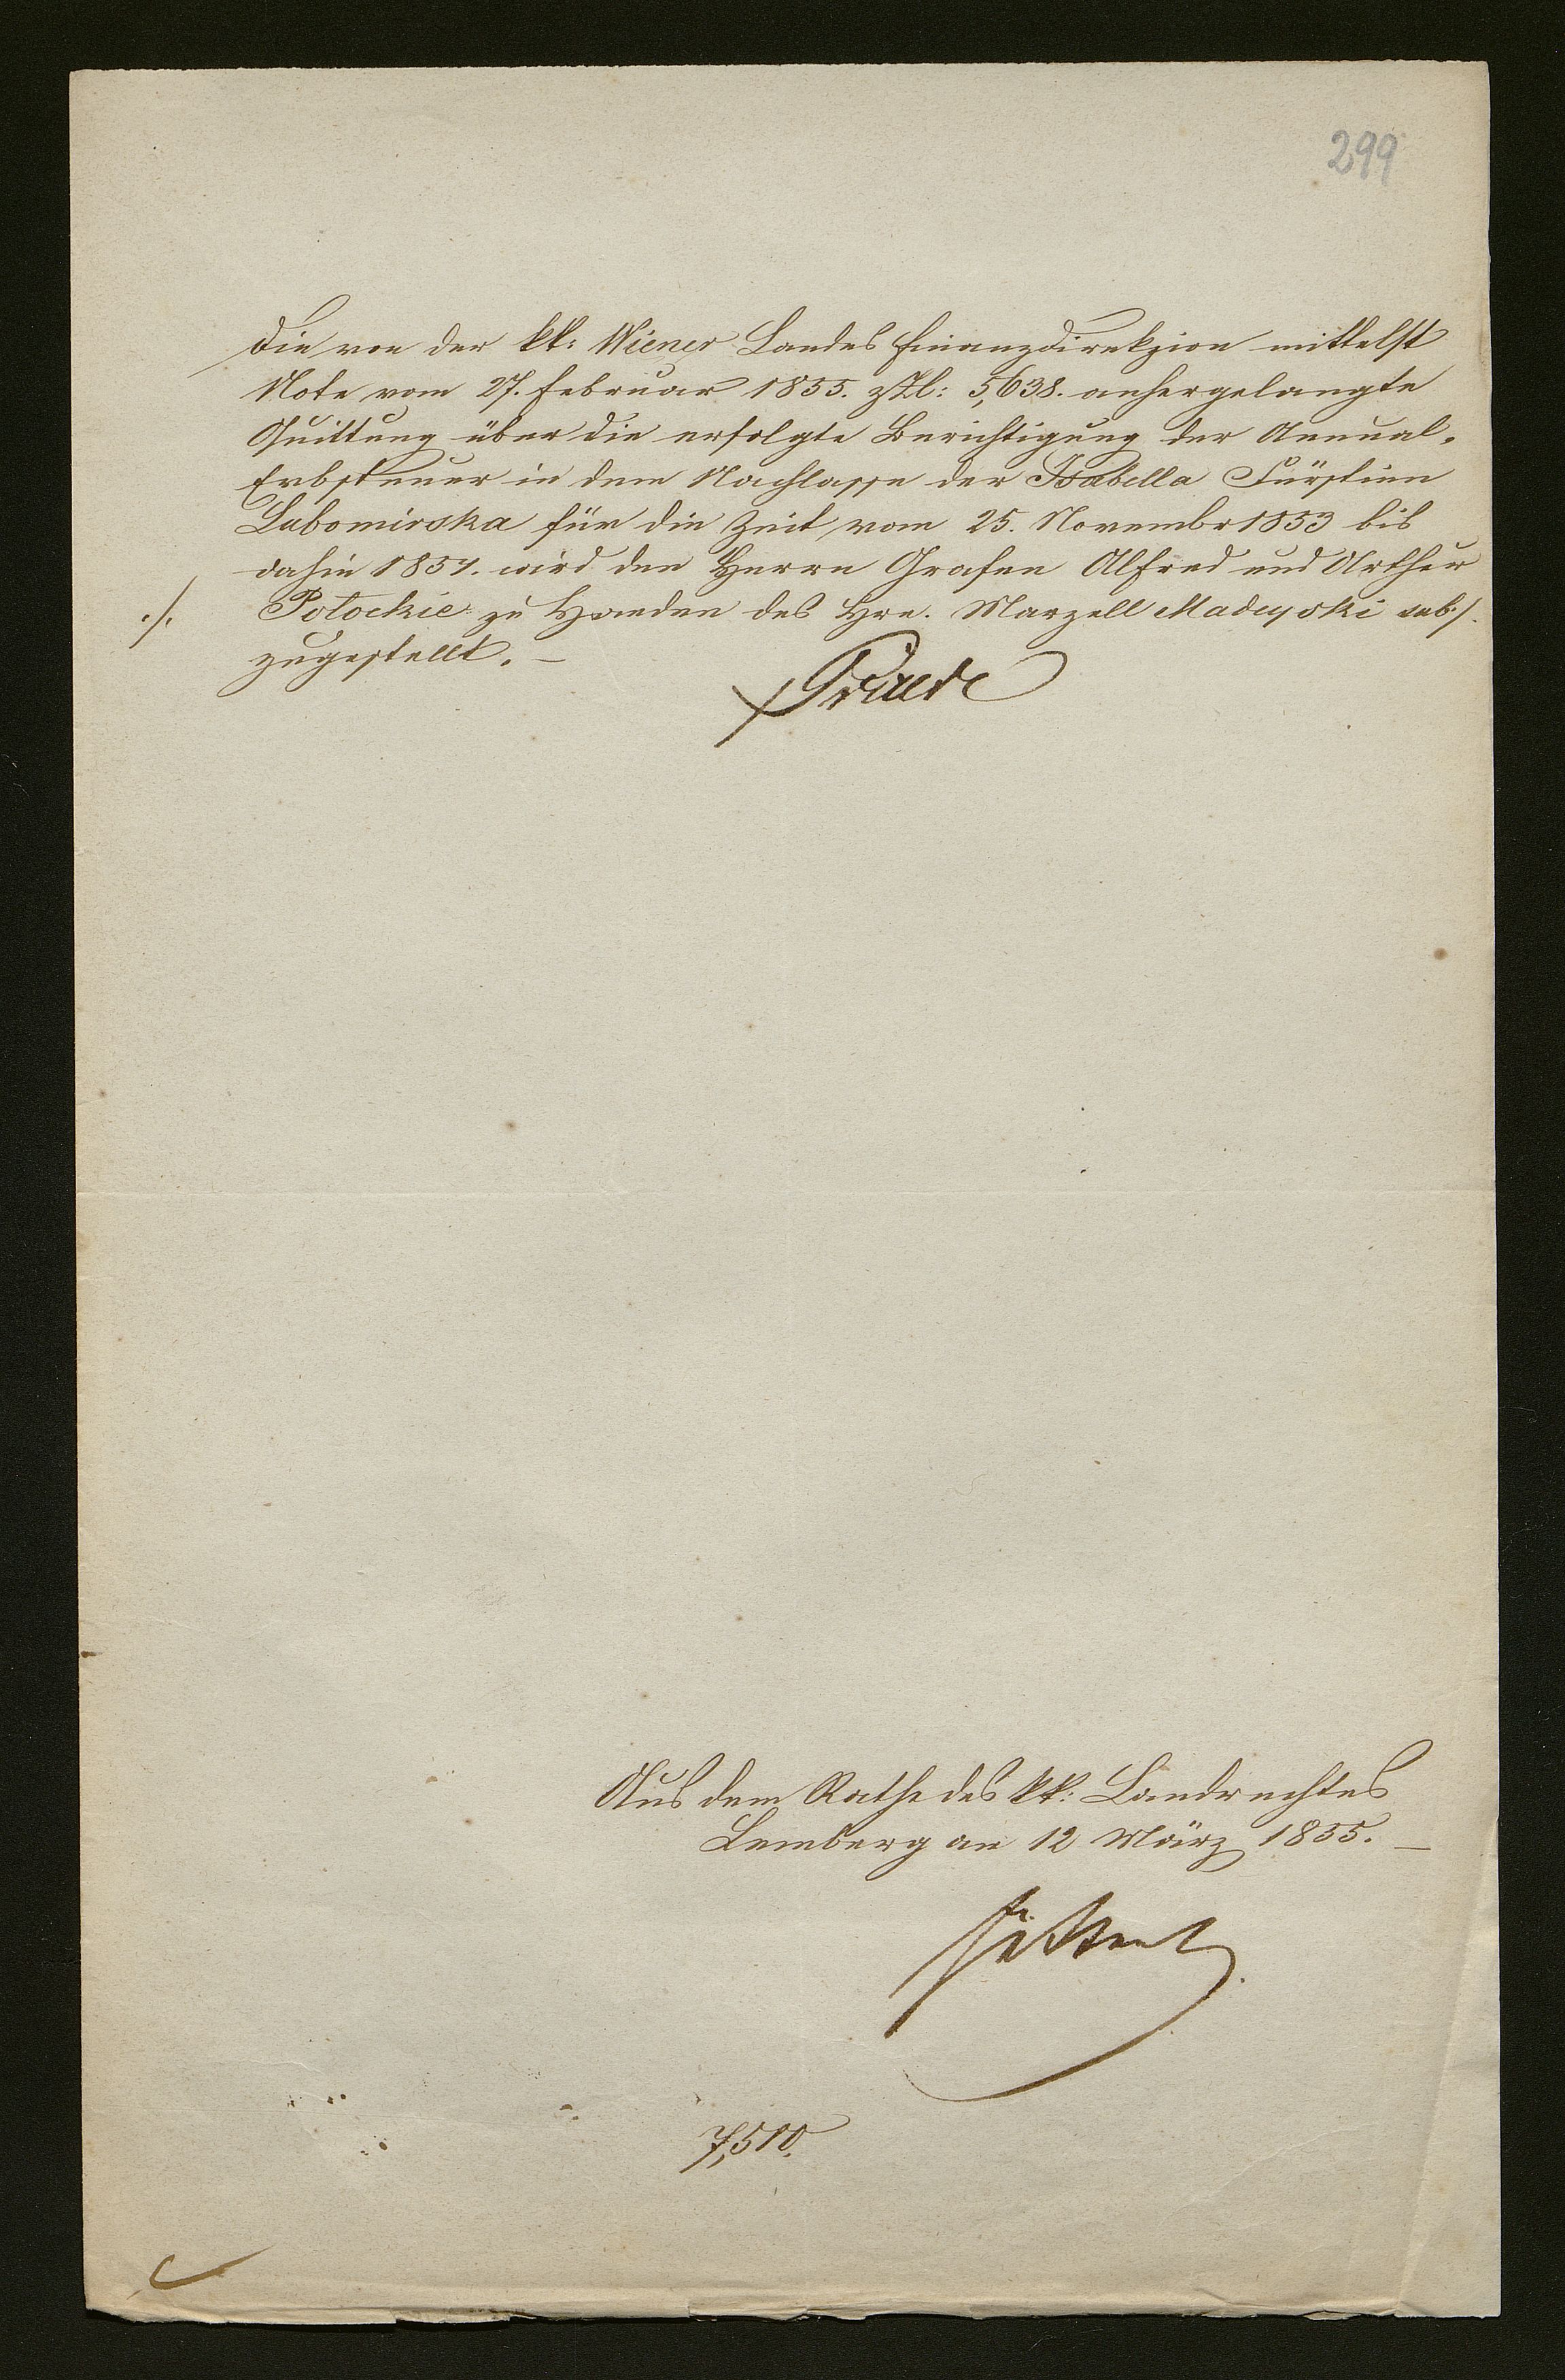 299
Die von der kk: Wiener Landes Finanzdirekzion mittelst
Note vom 27. Februar 1855. z Zl: 5,638. anhergelangte
Quittung über die erfolgte Berichtigung der Annual-
Erbsteuer in dem Nachlasse der Isabella Fürstinn
Lubomirska für die Zeit vom 25. Novembr 1853 bis
dahin 1854. wird den Herrn Grafen Alfred und Arthur
./. Potockie zu Handen des Hrn. Marzell Madeyski sub ./.
zugestellt. —
Aus dem Rathe des kk: Landrechtes
Lemberg am 12 März 1855. —
7,510.